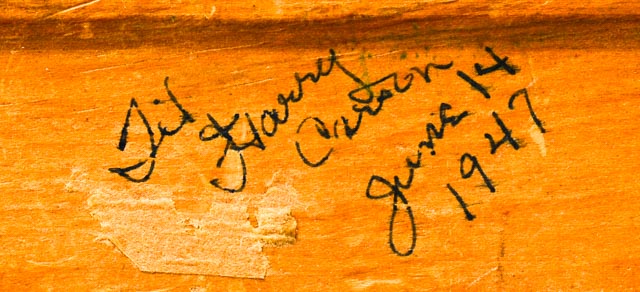 Til Harry
Carson
June 14
1947